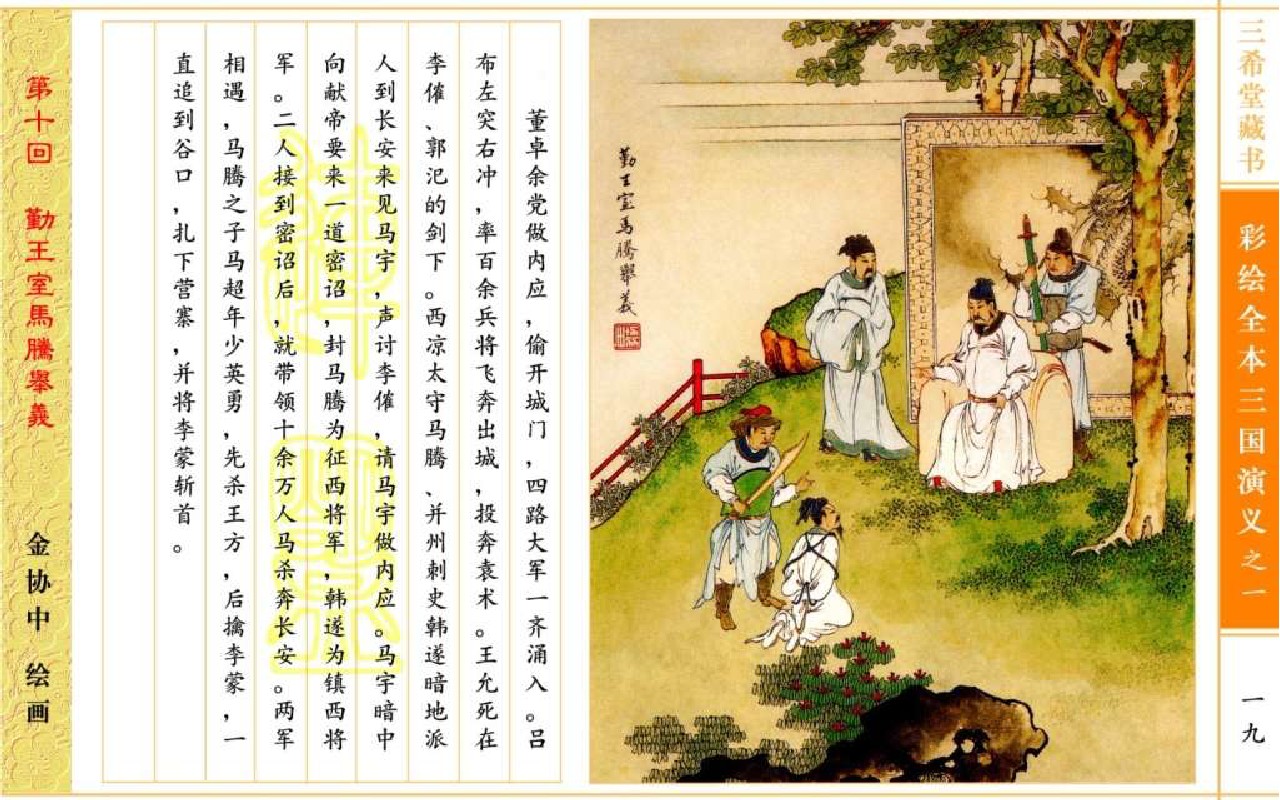 三希堂藏书
彩绘全本三国演义之一
一九
勤王室馬騰舉義
董卓余党做内应，偷开城门，四路大军一齐涌入。吕
布左突右冲，率百余兵将飞奔出城，投奔袁术。王允死在
李傕、郭汜的剑下。西凉太守马腾、并州刺史韩遂暗地派
人到长安来见马宇，声讨李傕，请马宇做内应。马宇暗中
向献帝要来一道密诏，封马腾为征西将军，韩遂为镇西将
军。二人接到密诏后，就带领十余万人马杀奔长安。两军
相遇，马腾之子马超年少英勇，先杀王方，后擒李蒙，一
直追到谷口，扎下营寨，并将李蒙斩首。
第十回 勤王室馬騰舉義
金协中 绘画